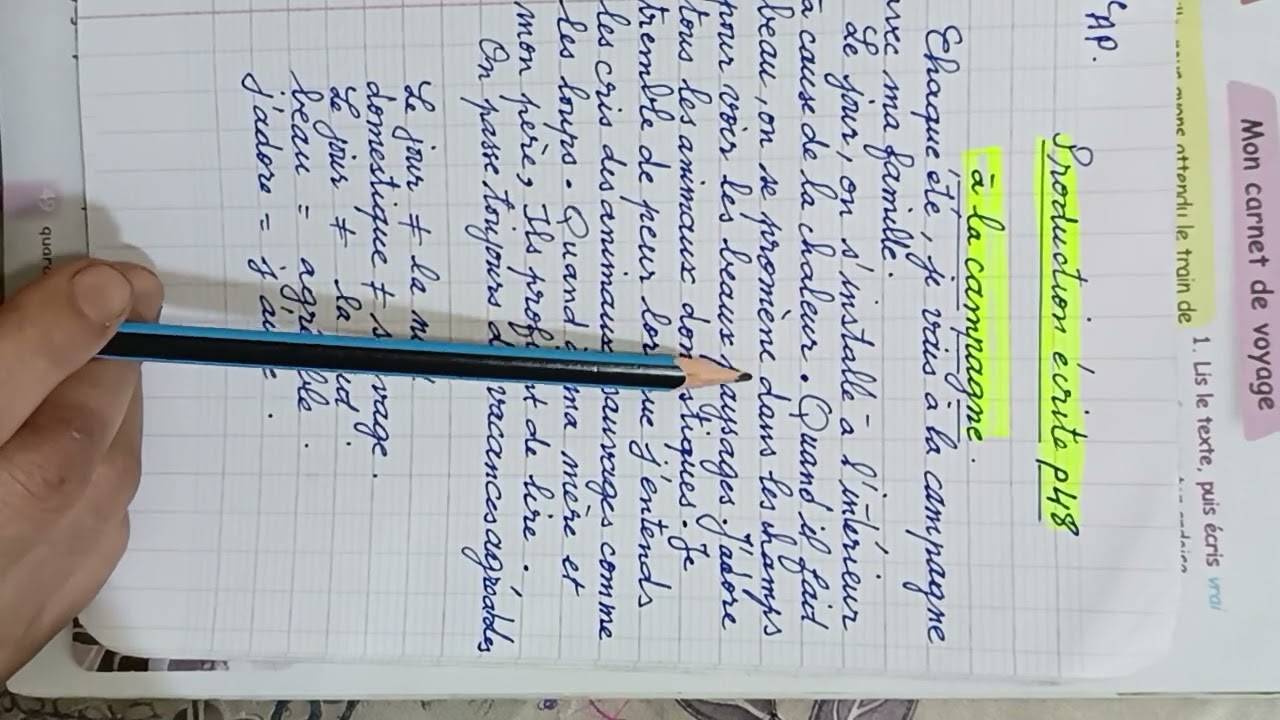 Mon carnet de voyage
attendu le train de
1. Lis le texte, puis écris vrai
CAP.
Production écrite p48
à la campagne.
Chaque été, je vais à la campagne
avec ma famille.
Le jour, on s'installe à l'intérieur
à cause de la chaleur. Quand il fait
beau, on se promène dans les champs
pour voir les beaux paysages. J'adore
tous les animaux domestiques. Je
tremble de peur lorsque j'entends
les cris des animaux sauvages comme
les loups. Quand à ma mère et
mon père, Ils profitent de lire.
On passe toujours de vacances agréables
Le jour ≠ la
domestique ≠ sauvage.
Le jour ≠ la
beau = agréable.
j'adore = j'aime.
49